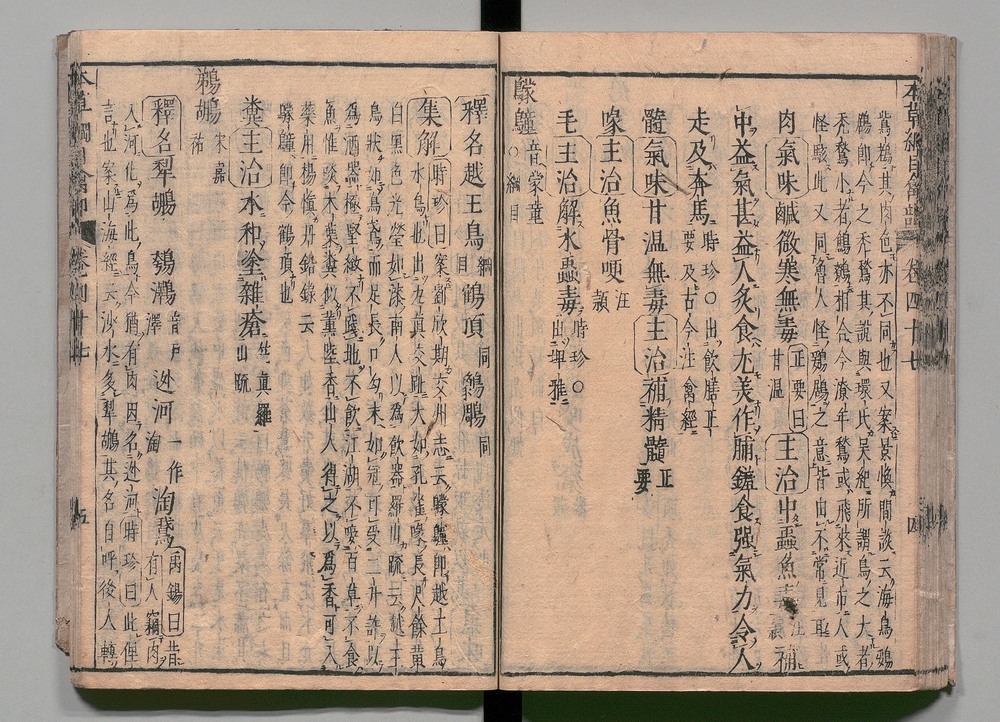 鵞鶴其肉色亦不同也又案景煥閒談云海鳥鶢
鶋即今之禿鶖其說與環氏吳紀所謂鳥之大者
禿鶖小者鶢鶋相合今潦年鶖或飛來近市人或
怪駭此又同魯人怪鶢鶋之意皆由不常見耳
肉氣味鹹微寒無毒正要曰甘温主治中蟲魚毒補
中益氣甚益人炙食尤美作脯饈食强氣力令人
走及奔馬時珍○出飲膳正要及古今注禽經
髓氣味甘温無毒主治補精髓正要
喙主治魚骨哽
毛主治解水蟲毒時珍○出埤雅
䴌鸛音蒙童○綱目
釋名越王鳥綱目鶴頂同鷯鵰同
集解時珍曰案劉欣期交州志云
水鳥也出九真交趾大如孔雀喙長尺餘黃
白黑色光瑩如漆南人以為飲器羅山疏云越王
鳥狀如烏鳶而足長口勾末如冠可受二升許以
為酒器極堅緻不踐地不飲江湖不唼百草不食
魚惟啖木葉糞似薰陸香山人得之以為香可入
藥用楊慎丹鉛錄云
即今鶴頂也
糞主治水和塗雜瘡竺真羅山疏
鵜鶘宋嘉祐
釋名犁鶘 鴮鸅音戶澤 逃河一作淘 淘鵞禹錫曰昔有人竊肉
入河化為此鳥今猶有肉因名逃河時珍曰此俚
言也案山海經云沙水多犁鶘其名自呼後人轉